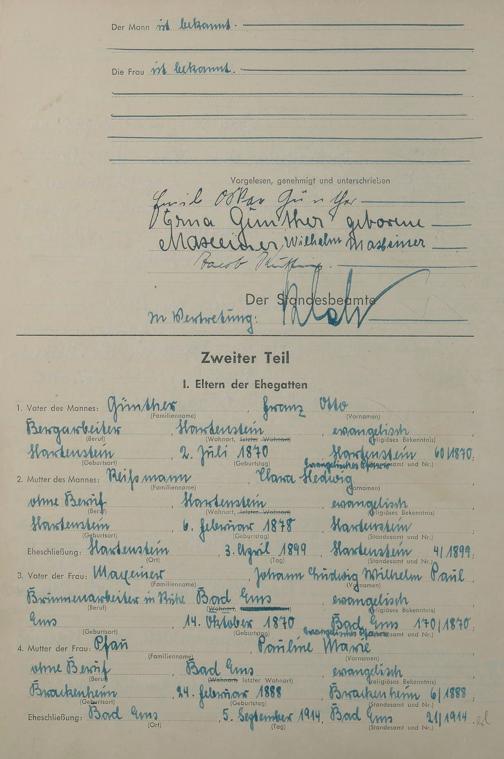 Der Mann ist bekannt.
Die Frau ist bekannt.
Vorgelesen, genehmigt und unterschrieben
Emil Oskar Günther
Erna Günther geborene
Maxeiner, Wilhelm Maxeiner
Jacob
Der Standesbeamte
In Vertretung:
Zweiter Teil
I. Eltern der Ehegatten
1. Vater des Mannes: Günther Franz Otto
(Familienname) (Vornamen)
Bergarbeiter Hartenstein evangelisch
(Beruf) (Wohnort, letzter Wohnort) (religiöses Bekenntnis)
Hartenstein 2. Juli 1870 Hartenstein 60/1870
(Geburtsort) (Geburtstag) (Standesamt und Nr.)
evangelisches Pfarramt
2. Mutter des Mannes: Reißmann Clara Hedwig
(Familienname) (Vornamen)
ohne Beruf Hartenstein evangelisch
(Beruf) (Wohnort, letzter Wohnort) (religiöses Bekenntnis)
Hartenstein 6. Februar 1878 Hartenstein
(Geburtsort) (Geburtstag) (Standesamt und Nr.)
Eheschließung: Hartenstein 3. April 1899 Hartenstein 4/1899
(Ort) (Tag) (Standesamt und Nr.)
3. Vater der Frau: Maxeiner Johann Ludwig Wilhelm Paul
(Familienname) (Vornamen)
Brunnenarbeiter in Ruhe Bad Ems evangelisch
(Beruf) (Wohnort) (religiöses Bekenntnis)
Ems 14. Oktober 1870 Bad Ems 170/1870
(Geburtsort) (Geburtstag) (Standesamt und Nr.)
evangelisches Pfarramt
4. Mutter der Frau: Pfau Pauline Marie
(Familienname) (Vornamen)
ohne Beruf Bad Ems evangelisch
(Beruf) (Wohnort letzter Wohnort) (religiöses Bekenntnis)
Brackenheim 24. Februar 1888 Brackenheim 6/1888
(Geburtsort) (Geburtstag) (Standesamt und Nr.)
Eheschließung: Bad Ems 5. September 1914 Bad Ems 21/1914
(Ort) (Tag) (Standesamt und Nr.)